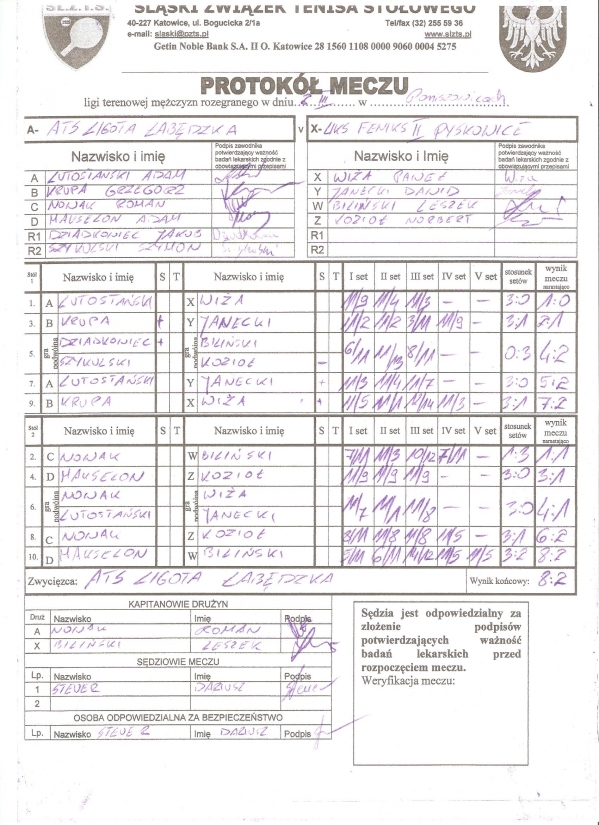 ŚL.Z.T.S.
ŚLĄSKI ZWIĄZEK TENISA STOŁOWEGO
40-227 Katowice, ul. Bogucicka 2/1a Tel/fax (32) 255 59 36
e-mail: slaski@pzts.pl www.slzts.pl
Getin Noble Bank S.A. II O. Katowice 28 1560 1108 0000 9060 0004 5275
PROTOKÓŁ MECZU
ligi terenowej mężczyzn rozegranego w dniu 2.III w Paniszowicach
A- ATS LIGOTA ŁABĘDZKA v X- LKS FENIKS II PYSKOWICE
Nazwisko i Imię Podpis zawodnika potwierdzający ważność badań lekarskich zgodnie z obowiązującymi przepisami Nazwisko i Imię Podpis zawodnika potwierdzający ważność badań lekarskich zgodnie z obowiązującymi przepisami
A LUTOSTAŃSKI ADAM X WIŻA PAWEŁ
B KRUPA GRZEGORZ Y JANECKI DAWID
C NOWAK ROMAN W BILIŃSKI LESZEK
D MAUSELON ADAM Z KOZIOŁ NORBERT
R1 DZIADKONIEC JAKUB R1
R2 SZYKULSKI SZYMON R2
Stół 1 Nazwisko i imię S T Nazwisko i imię S T I set II set III set IV set V set stosunek setów wynik meczu narastająco
1. A LUTOSTAŃSKI X WIŻA 11/9 11/4 11/3 – – 3:0 1:0
3. B KRUPA + Y JANECKI 11/2 11/2 3/11 11/9 – 3:1 2:1
5. gra podwójna DZIADKONIEC + gra podwójna BILIŃSKI 6/11 11/13 8/11 – – 0:3 4:2
SZYKULSKI KOZIOŁ –
7. A LUTOSTAŃSKI Y JANECKI + 11/3 11/4 11/7 – – 3:0 5:2
9. B KRUPA X WIŻA + 11/5 11/1 12/14 11/3 – 3:1 7:2
Stół 2 Nazwisko i imię S T Nazwisko i imię S T I set II set III set IV set V set stosunek setów wynik meczu narastająco
2. C NOWAK W BILIŃSKI 7/11 11/3 10/12 7/11 – 1:3 1:1
4. D MAUSELON Z KOZIOŁ 11/9 11/9 11/9 – – 3:0 3:1
6. gra podwójna NOWAK gra podwójna WIŻA 11/7 11/1 11/8 – – 3:0 4:1
LUTOSTAŃSKI JANECKI
8. C NOWAK Z KOZIOŁ 8/11 11/8 11/8 11/5 – 3:1 6:2
10. D MAUSELON W BILIŃSKI 5/11 6/11 14/12 11/5 11/5 3:2 8:2
Zwycięzca: ATS LIGOTA ŁABĘDZKA Wynik końcowy: 8:2
KAPITANOWIE DRUŻYN
Druż Nazwisko Imię Podpis
A NOWAK ROMAN
X BILIŃSKI LESZEK
SĘDZIOWIE MECZU
Lp. Nazwisko Imię Podpis
1 STEUER DARIUSZ
2
OSOBA ODPOWIEDZIALNA ZA BEZPIECZEŃSTWO
Lp. Nazwisko STEUER Imię DARIUSZ Podpis
Sędzia jest odpowiedzialny za
złożenie podpisów
potwierdzających ważność
badań lekarskich przed
rozpoczęciem meczu.
Weryfikacja meczu: